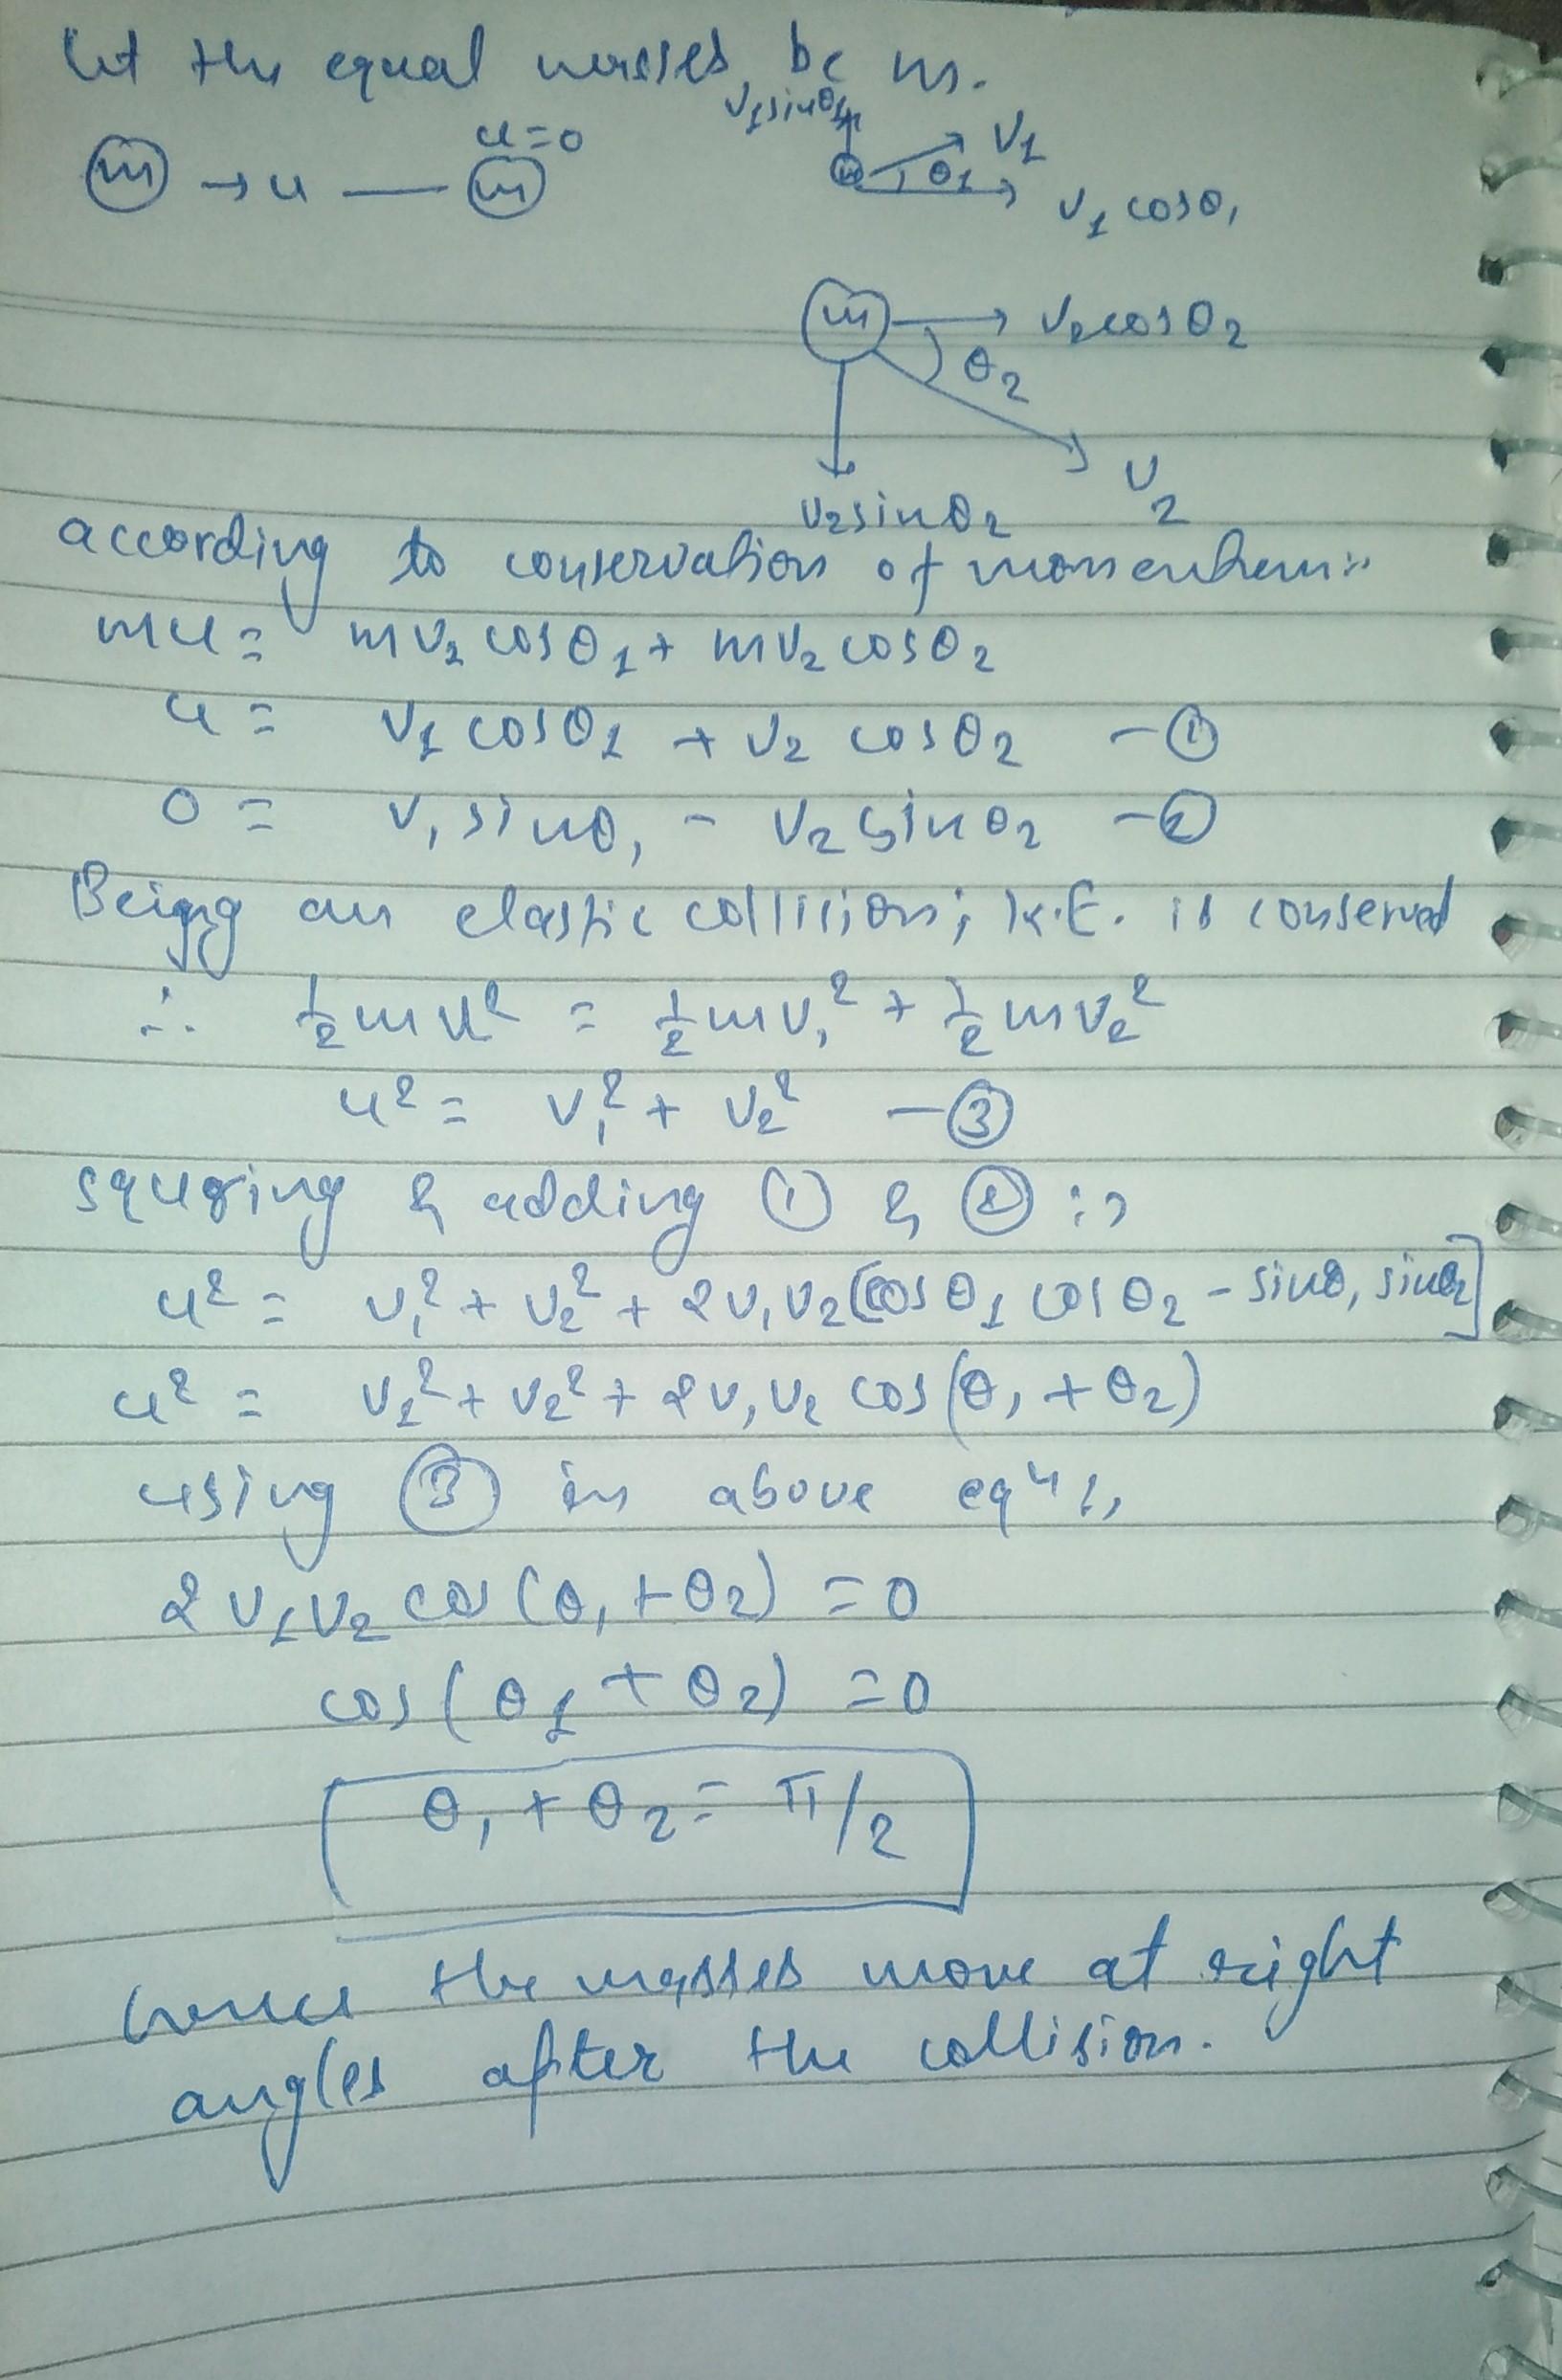 let the equal masses be m.
v₁sinθ₁
u=0
v₁
m → u — m
m
θ₁
v₁ cosθ₁
m
v₂cosθ₂
θ₂
v₂
v₂sinθ₂
according to conservation of momentum:
mu = mv₁ cosθ₁ + mv₂ cosθ₂
u = v₁ cosθ₁ + v₂ cosθ₂ - ①
0 = v₁ sinθ₁ - v₂ sinθ₂ - ②
Being an elastic collision; K.E. is conserved
∴ ½mu² = ½mv₁² + ½mv₂²
u² = v₁² + v₂² - ③
squaring & adding ① & ② :,
u² = v₁² + v₂² + 2v₁v₂[cosθ₁ cosθ₂ - sinθ₁ sinθ₂]
u² = v₁² + v₂² + 2v₁v₂ cos(θ₁ + θ₂)
using ③ in above eqⁿ :,
2v₁v₂ cos(θ₁ + θ₂) = 0
cos(θ₁ + θ₂) = 0
θ₁ + θ₂ = π/2
hence the masses move at right
angles after the collision.